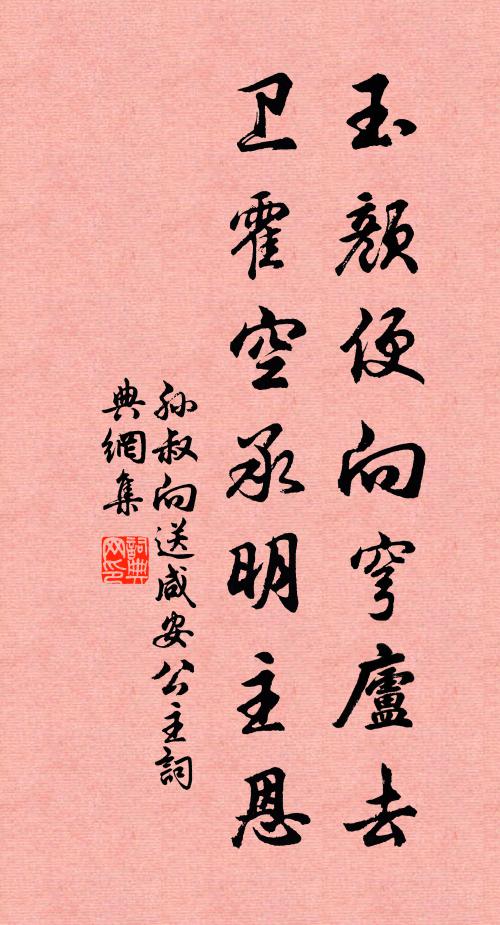 玉颜便向穹廬去
卫霍空承明主恩
孙叔向送咸安公主詞
典網集
詞典网印